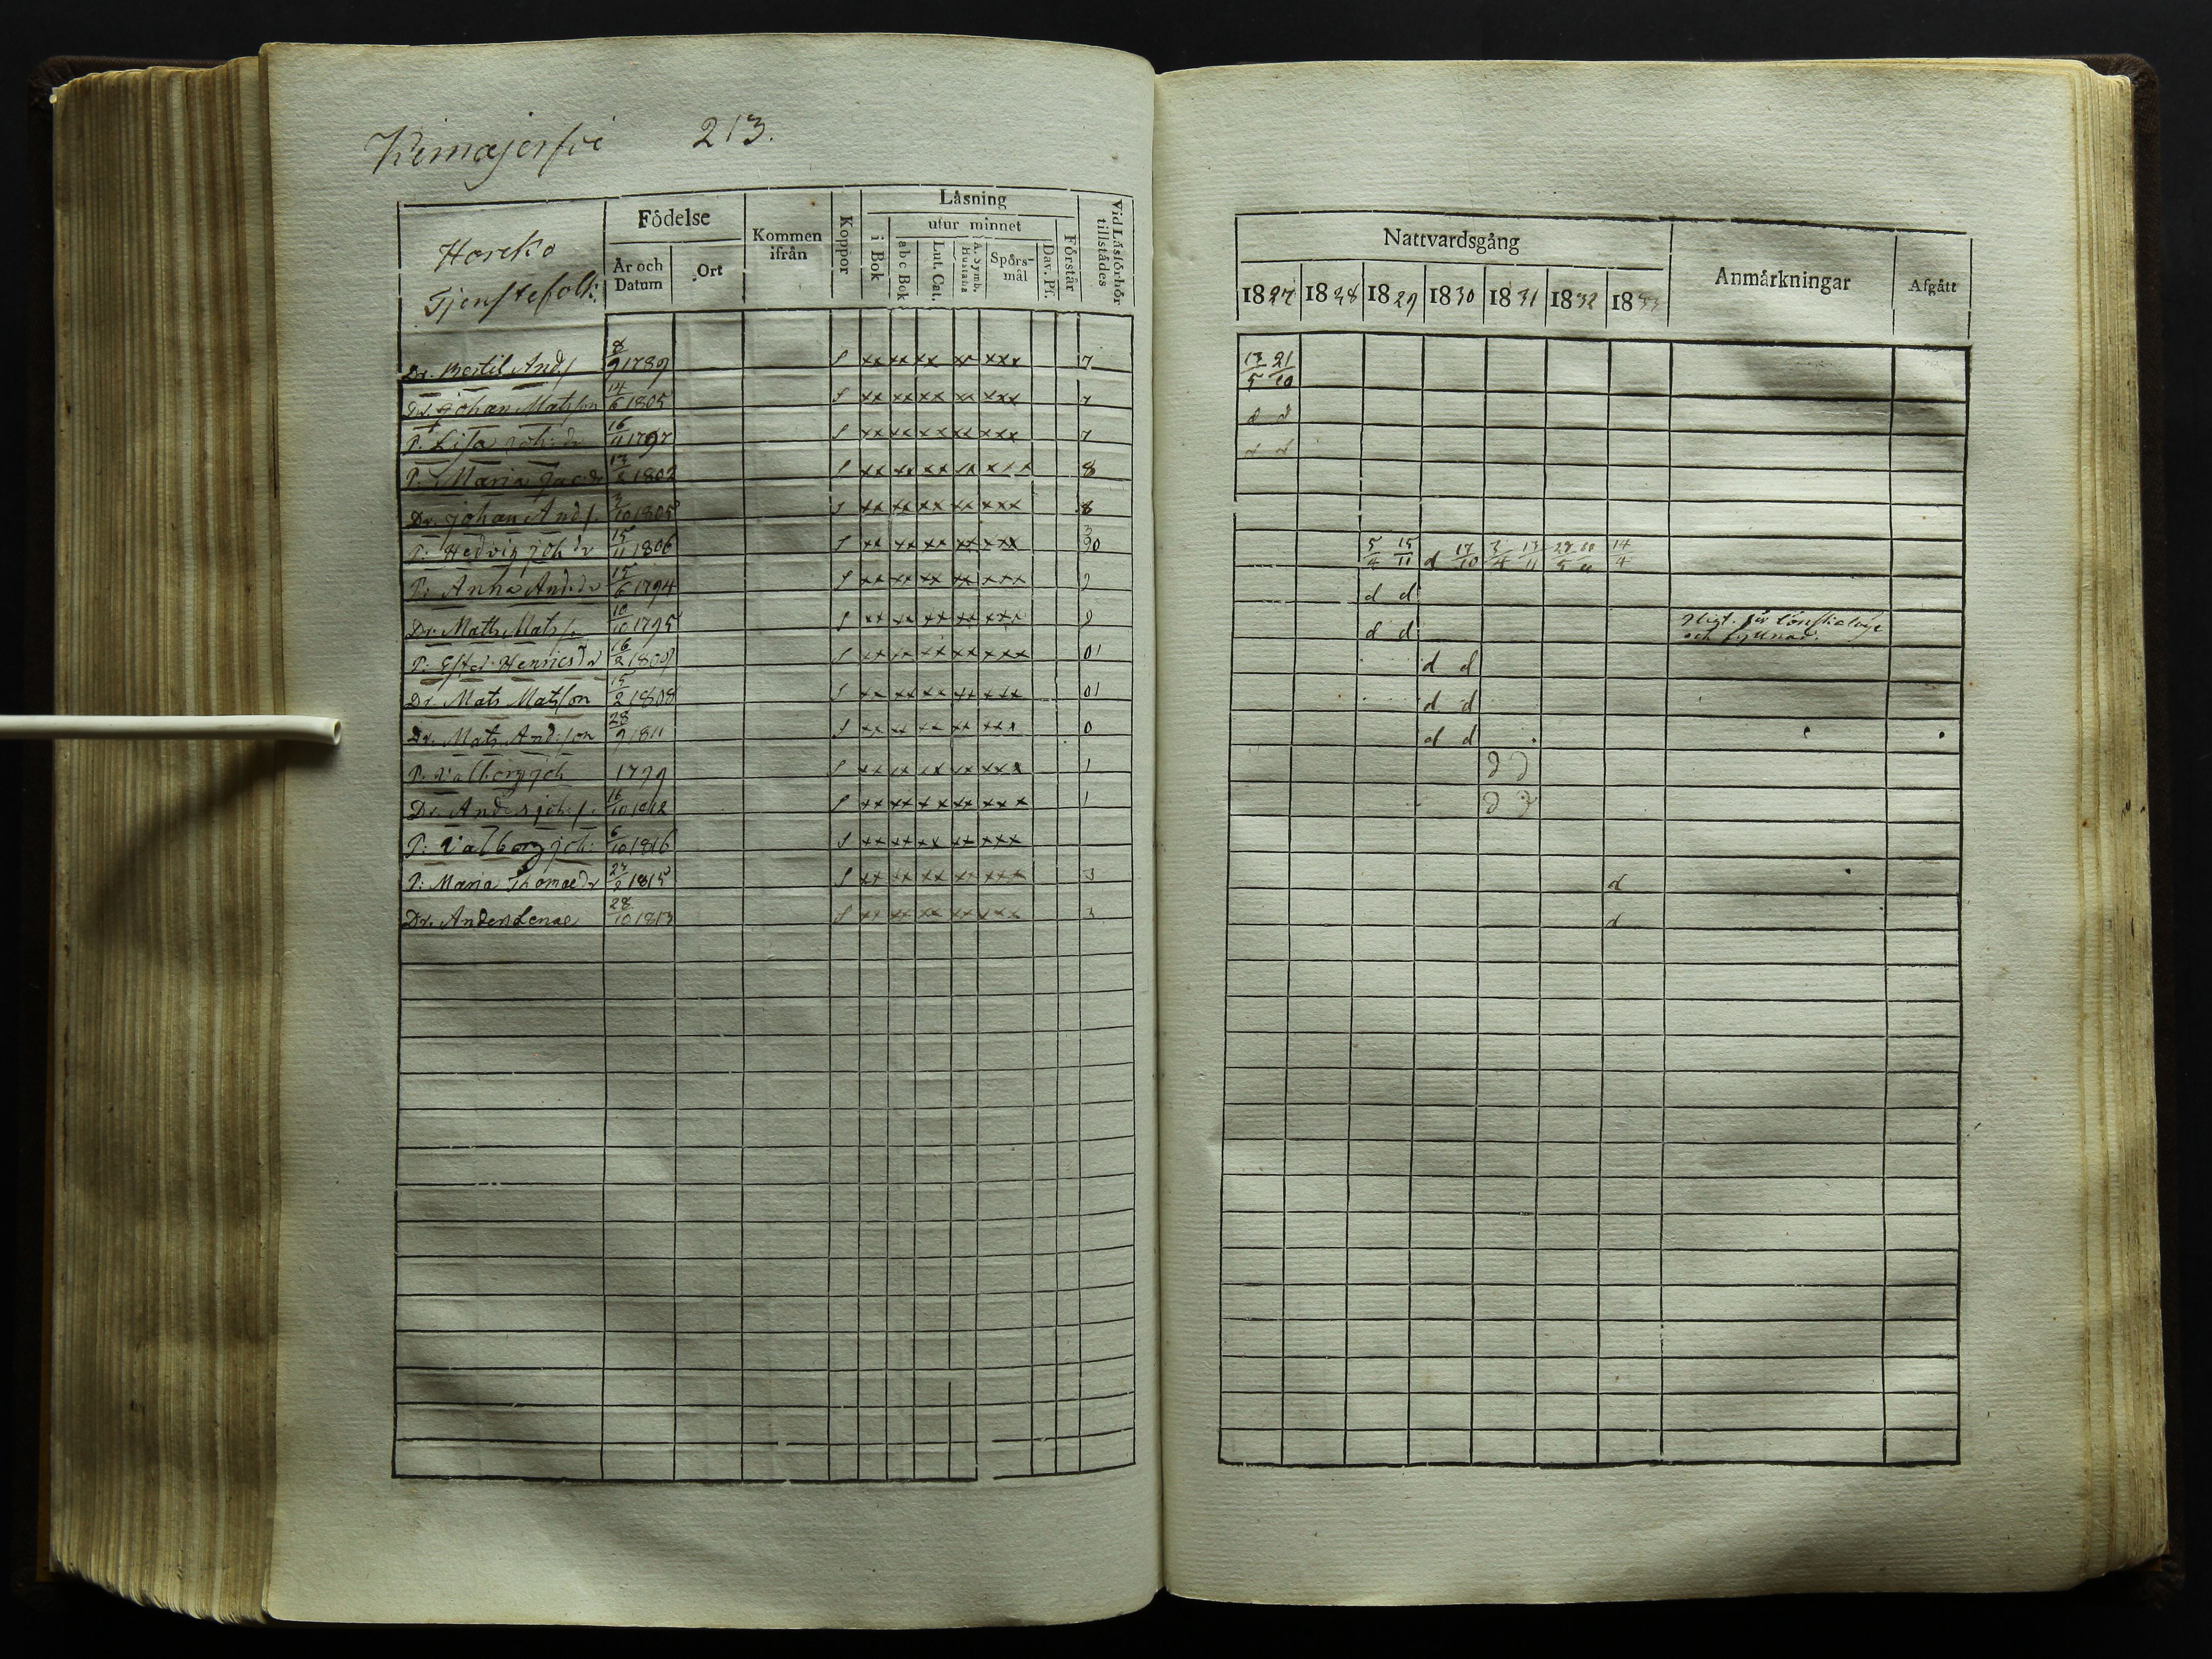 213.
Födelse
Kommen ifrån
Koppor
Läsning
i Bok
utur minnet
abc Bok
Lut. Cat.
A. Symb. Hustafla
Spörsmål
Dav. Ps.
Förstår
Vid Läsförhör tillstädes
År och Datum
Ort
Horcko
Tjenstefolk:
Nattvardsgång
Anmärkningar
Afgått
1827 1828 1829 1830 1831 1832 1833
Dr. Bertil And/ 8/9 1789 S xx xx xx xx xxx 7 13/5 21/10
Dr. Johan Matsson 14/6 1805 S xx xx xx xx xxx 7 d d
P. Lisa Joh: dr 16/11 1797 S xx xx xx xx xxx 7 d d
P. Maria Jac:dr 1802 S xx xx xx xx xxx 8
Dr. Johan And/. 3/10 1805 S xx xx xx xx xxx 8
P: Hedvig joh dr 15/11 1806 S xx xx xx xx xxx 3 90 5/4 15/11 d 17/10 3/4 13/11 14/4
P: Anna And:dr 15/6 1794 S xx xx xx xx xxx 9 d d
Dr. Matts Mats/. 10/10 1795 S xx xx xx xx xxx 9 d d
P: Henricsdr 16/2 1809 S xx xx xx xx xxx 01 d d
Dr. Mats Matsson 15/2 1808 S xx xx xx xx xxx 01 d d
Dr. Mats And:son 28/9 1811 S xx xx xx xx xxx 0 d d
P. Valborg joh 1779 S xx xx xx xx xxx 1 d d
Dr. Anders joh:/. 16/10 1812 S xx xx xx xx xxx 1 d d
P: Valborg joh: 6/10 1816 S xx xx xx xx xxx
P: Maria Thomaedr 1815 S xx xx xx xx xxx 3 d
Dr. Anders 28/10 1813 S xx xx xx xx xxx 3 d